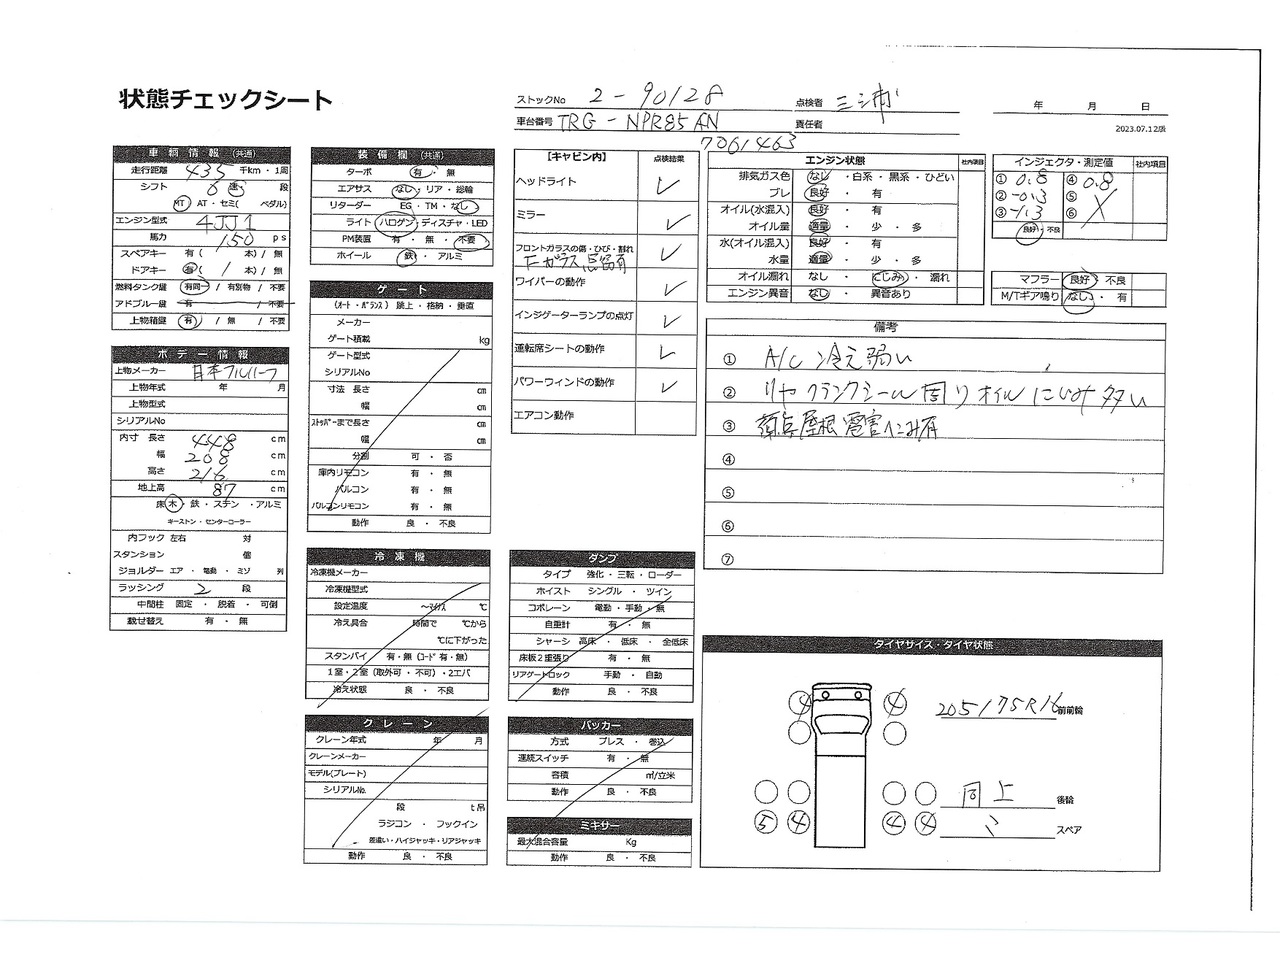 状態チェックシート
ストックNo 2-90128
点検者 三浦
年 月 日
車台番号 TRG-NPR85AN
責任者
2023.07.12版
7061463
車輌情報 (共通)
走行距離 435 千km・1周
シフト 6 速・ 段
MT・AT・セミ( ペダル)
エンジン型式 4JJ1
馬力 150 ps
スペアキー 有 ( 本) / 無
ドアキー 有 ( 1 本) / 無
燃料タンク鍵 有同一 / 有別物 / 不要
アドブルー鍵 有 / 不要
上物箱鍵 有 / 無 / 不要
ボデー情報
上物メーカー 日本フルハーフ
上物年式 年 月
上物型式
シリアルNo
内寸 長さ 448 cm
幅 208 cm
高さ 216 cm
地上高 87 cm
床 木・鉄・ステン・アルミ
キーストン・センターコーラー
内フック 左右 対
スタンション 個
ジョルダー エア・電動・ミゾ 列
ラッシング 2 段
中間柱 固定・脱着・可倒
載せ替え 有・無
装備欄 (共通)
ターボ 有・無
エアサス なし・リア・総輪
リターダー EG・TM・なし
ライト ハロゲン・ディスチャ・LED
PM装置 有・無・不要
ホイール 鉄・アルミ
ゲート
(オート・バランス) 跳上・格納・垂直
メーカー
ゲート積載 kg
ゲート型式
シリアルNo
寸法 長さ cm
幅 cm
ストッパーまで長さ cm
幅 cm
分割 可・否
庫内リモコン 有・無
バルコン 有・無
バルコンリモコン 有・無
動作 良・不良
冷凍機
冷凍機メーカー
冷凍機型式
設定温度 ～マイナス ℃
冷え具合 時間で ℃から
℃に下がった
スタンバイ 有・無 (コード 有・無)
1室・2室 (取外可・不可)・2エバ
冷え状態 良・不良
クレーン
クレーン年式 年 月
クレーンメーカー
モデル(プレート)
シリアルNo.
段 t吊
ラジコン・フックイン
差違い・ハイジャッキ・リアジャッキ
動作 良・不良
【キャビン内】 点検結果
ヘッドライト ✓
ミラー ✓
フロントガラスの傷・ひび・割れ ✓
Fガラス 飛石有
ワイパーの動作 ✓
インジゲーターランプの点灯 ✓
運転席シートの動作 ✓
パワーウィンドの動作 ✓
エアコン動作
ダンプ
タイプ 強化・三転・ローダー
ホイスト シングル・ツイン
コボレーン 電動・手動・無
自重計 有・無
シャーシ 高床・低床・全低床
床板2重張り 有・無
リアゲートロック 手動・自動
動作 良・不良
パッカー
方式 プレス・巻込
連続スイッチ 有・無
容積 ㎥/立米
動作 良・不良
ミキサー
最大混合容量 Kg
動作 良・不良
エンジン状態 社内項目
排気ガス色 なし・白系・黒系・ひどい
ブレ 良好・有
オイル(水混入) 良好・有
オイル量 適量・少・多
水(オイル混入) 良好・有
水量 適量・少・多
オイル漏れ なし・にじみ・漏れ
エンジン異音 なし・異音あり
インジェクタ・測定値 社内項目
① 0.8 ④ 0.8
② -0.3 ⑤
③ -1.3 ⑥
良好・不良
マフラー 良好・不良
M/Tギア鳴り なし・有
備考
① A/C 冷え弱い
② リヤクランクシール周りオイルにじみ多い
③ 荷台屋根 雹害凹み有
④
⑤
⑥
⑦
タイヤサイズ・タイヤ状態
4 4 205/75R16 前前輪
同上 後輪
5 4 4 4 〃 スペア